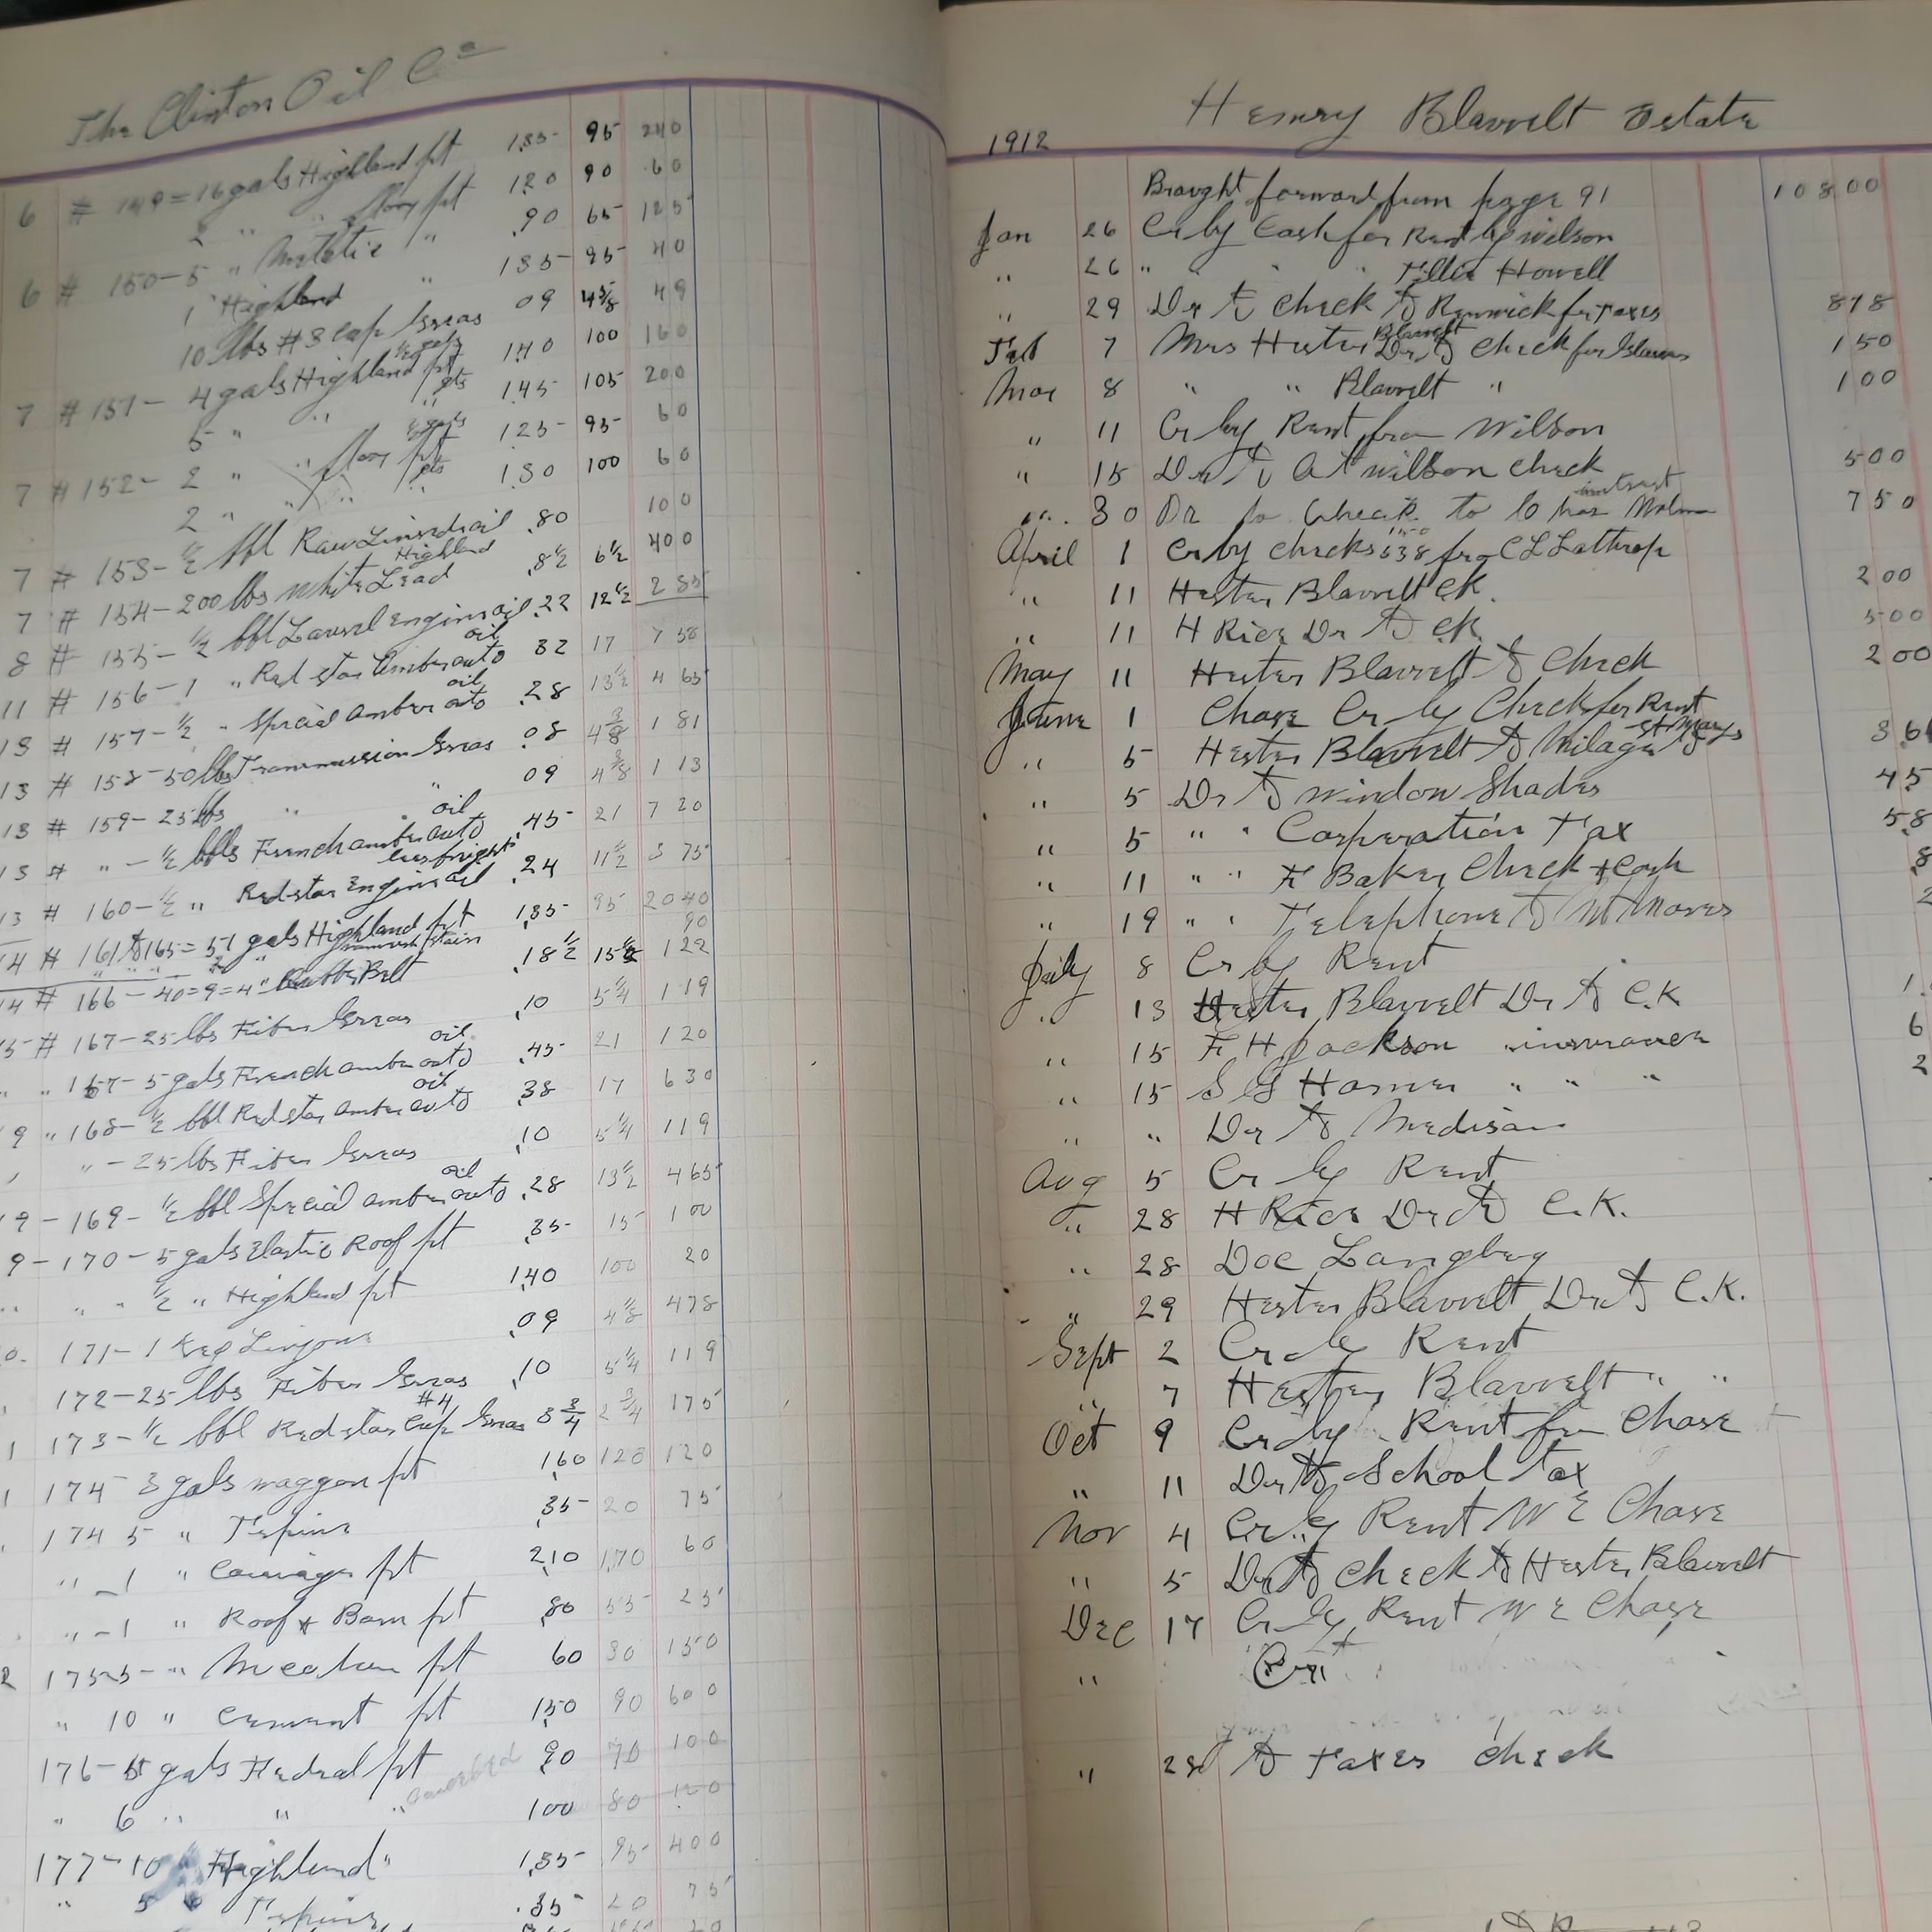 The Clinton Oil Co
6 # 149=16 gals Highland pt 1.35 95 240
2 " " floor pt 1.20 90 60
6 # 150-5 " " .90 65 125
1 " Highland " 1.35 95 40
10 lbs #3 Cup Greas 09 4 5/8 49
7 # 151- 4 gals Highland pt 1/2 gals 1.40 100 160
5 " " " pts 1.45 105 200
7 # 152- 2 " " floor pt 1/2 gals 1.25 95 60
2 " " " pts 1.30 100 60
7 # 153- 1/2 bbl Raw Linsdoil .80 100
7 # 154-200 lbs White Lead Highland .8 1/2 6 1/2 400
8 # 155- 1/2 bbl Laurel Engine oil .22 12 1/2 285
11 # 156-1 " Red star Amber auto oil 32 17 758
13 # 157- 1/2 " Special Amber auto oil .28 13 1/2 465
13 # 158-50 lbs Transmission Greas .08 4 3/8 181
13 # 159-25 lbs " " 09 4 3/8 113
13 # " - 1/2 bbls French amber auto oil .45 21 720
less freight
13 # 160- 1/2 " Red star Engine oil .24 11 1/2 375
14 # 161 to 165= 57 gals Highland pt 1.35 95 2040
90
14 # 166-40=9=4" Rubber Belt .18 1/2 15 122
15 # 167-25 lbs Fiber Greas .10 5 1/4 119
" " 167-5 gals French amber auto oil .45 21 120
9 " 168- 1/2 bbl Red star Amber auto oil .38 17 630
" -25 lbs Fiber Greas .10 5 1/4 119
9-169- 1/2 bbl Special amber auto oil .28 13 1/2 465
9-170-5 gals Elastic Roof pt .35 15 100
" " 1/2 " Highland pt 1.40 100 20
171-1 Keg .09 4 1/8 478
172-25 lbs Fiber Greas .10 5 1/4 119
1 173- 1/2 bbl Red star Cup Greas #4 3 3/4 2 3/4 175
1 174 3 gals waggon pt 1.60 120 120
174 5 " Tepine .35 20 75
" -1 " Carriage pt 2.10 1.70 60
" -1 " Roof & Barn pt .80 55 25
2 175-5- " pt 60 30 150
" 10 " Cement pt 1.50 90 600
176-5 gals Fedral pt .90 70 100
" 6 " " " 100 80 120
177-10 " Highland " 1.35 95 400
" 5 " Tepine .35 20 75
Henry Blauvelt Estate
1912
Brought forward from page 91 108.00
Jan 26 Cr by Cash for Rent by Wilson
" 26 " " " " Howell
" 29 Dr to Check to Renwick for Taxes 878
Feb 7 Mrs Hester Blauvelt Dr to Check for 150
Mar 8 " " Blauvelt " 100
" 11 Cr by Rent from Wilson
" 15 Dr to A T Wilson Check 500
" 30 Dr to Check to intrest 750
April 1 Cr by Checks 538 from C L Lathrop
" 11 Hester Blauvelt CK. 200
" 11 H Rice Dr to CK. 500
May 11 Hester Blauvelt to Check 200
June 1 Chase Cr by Check for Rent
" 5 Hester Blauvelt to Milage to St Marys 36
" 5 Dr to Window Shades 45
" 5 " " Corperation Tax 58
" 11 " " F Baker Check & Cash 8
" 19 " " Telephone to Mt Moris 2
July 8 Cr by Rent
" 13 Hester Blauvelt Dr to C.K 1.
" 15 F H Jackson insurance 6
" 15 S G Horner " " " 2
" " Dr to Medison
Aug 5 Cr by Rent
" 28 H Rice Dr to C.K.
" 28 Doc Langbey
" 29 Hester Blauvelt Dr to C.K.
Sept 2 Cr by Rent
" 7 Hester Blauvelt " "
Oct 9 Cr by Rent from Chase
" 11 Dr to School Tax
Nov 4 Cr by Rent W E Chase
" 5 Dr to Check to Hester Blauvelt
Dec 17 Cr by Rent W E Chase
"
" 28 to Taxes Check